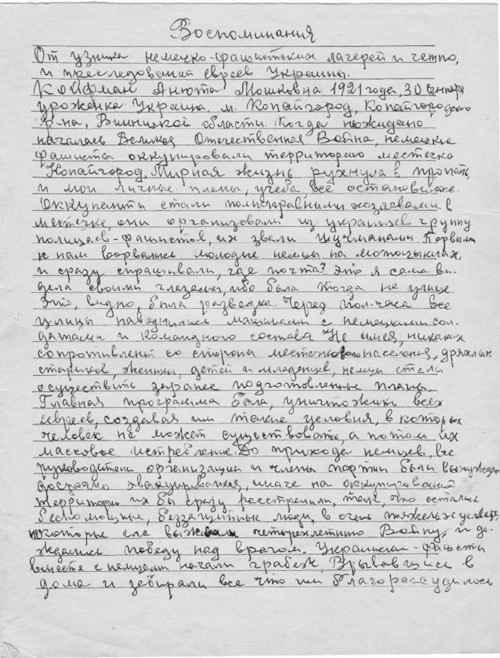 Воспоминания
От узницы немецко-фашистских лагерей и гетто,
и преследования евреев Украины.
Койфман Анюта Мошковна 1921 года, 30 января
уроженка Украина, м. Копайгород, Копайгородского
р-на, Винницкой области. Когда неожидано
началась Великая Отечественная Война, немецкие
фашисты оккупировали территорию местечко
Копайгород. Мирная жизнь рухнула в пропасть
и мои личные планы, учеба всё остановилось.
Оккупанты стали полноправными хозяевами в
местечке, они организовали из украинцев группу
полицаев-фашистов, их звали шуцманами. Первыми
к нам ворвались молодые немцы на мотоциклах,
и сразу спрашивали, где почта? Это я сама ви-
дела своими глазами, ибо была тогда на улице.
Это, видно, была разведка. Через полчаса все
улицы наводнились машинами с немецкими сол-
датами и командного состава. Не имея, никаких
сопротивлений со стороны местного населения, дряхлых
стариков, женщин, детей и младенцев, немцы стали
осуществить заранее подготовленные планы.
Главная программа была, уничтожить всех
евреев, создавая им такие условия, в которых
человек не может существовать, а потом их
массовое истребление. До прихода немцев, все
руководители организации и члены партии были вынуждены
досрочно эвакуироваться, иначе на оккупированной
территории их бы сразу расстреляли, так что остались
беспомощные, беззащитные люди, в очень тяжелых условиях,
которые еле выжили четырехлетнюю Войну, и до-
ждались победу над врагом. Украинские-фашисты
вместе с немцами начали грабеж. Врывавшись в
дома и забирали все что им благорассудилось